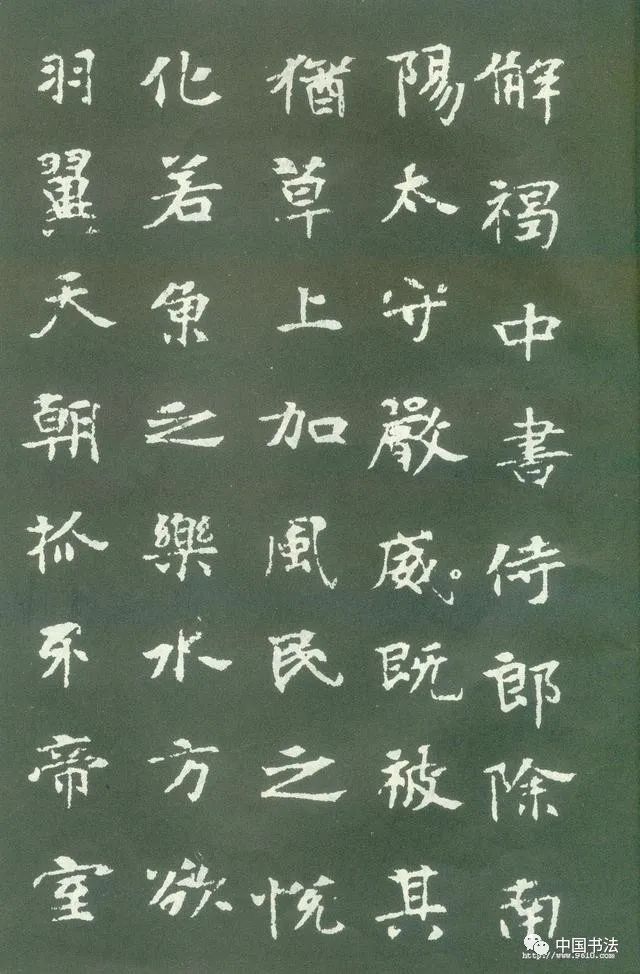 解褐中書侍郎除南
陽太守嚴威。既被其
猶草上加風民之悅
化若魚之樂水方欲
羽翼天朝抓牙帝室
中国书法
http://www.9610.com